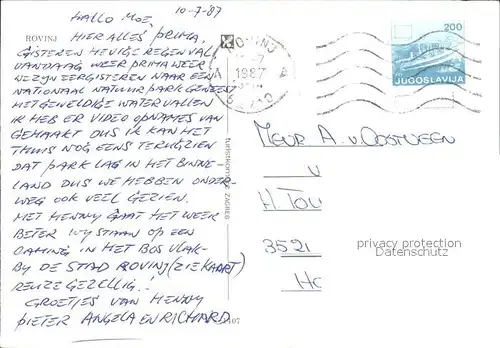 10-7-87
HALLO MOE,
ROVINJ
HIER ALLES PRIMA.
GISTEREN HEVIGE REGENVAL
VANDAAG WEER PRIMA WEER
WE ZYN EERGISTEREN NAAR EEN
NATIONAAL NATUURPARK GEWEEST
MET GEWELDIGE WATERVALLEN
IK HEB ER VIDEO OPNAMES VAN
GEMAAKT DUS IK KAN HET
THUIS NOG EENS TERUGZIEN
DAT PARK LAG IN HET BINNE-
LAND DUS WE HEBBEN ONDER-
WEG OOK VEEL GEZIEN.
MET HENNY GAAT HET WEER
BETER WY STAAN OP EEN
CAMING IN HET BOS VLAK-
BY DE STAD ROVINJ (ZIE KAART)
REUZE GEZELLIG!
GROETJES VAN HENNY
PIETER ANGELA EN RICHARD
ROVINJ
1987
A A
52210
200
JUGOSLAVIJA
MEVR A. v. OOSTVEEN
v
H. TOU
3521
HO
privacy protection
Datenschutz
turistkomerc ZAGREB